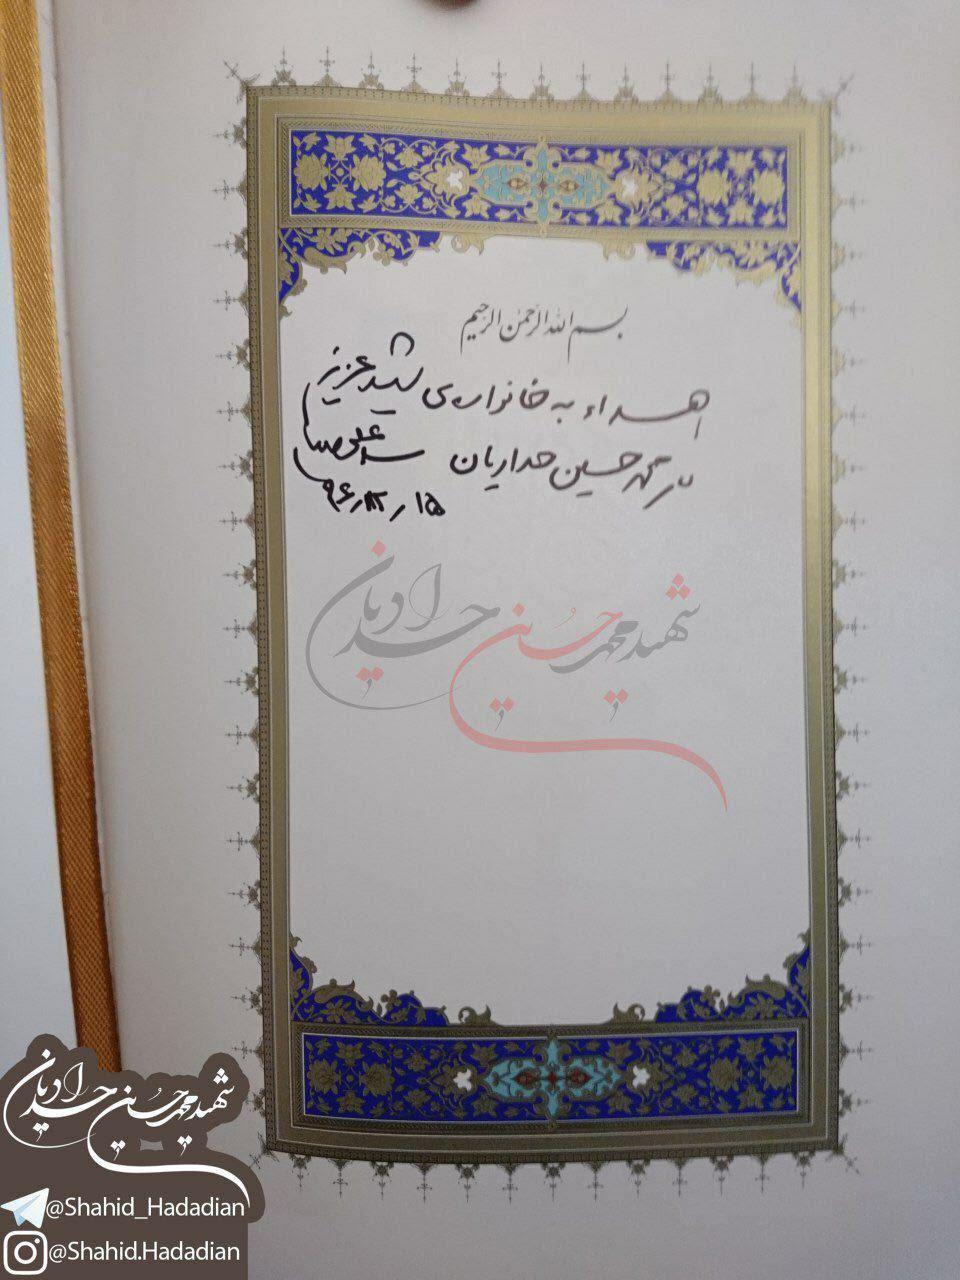 بسم الله الرحمن الرحیم
اهداء به خانواده‌ی شهید عزیز
محمد حسین حدادیان سید علی
۹۶٫۱۲٫۱۵
شهید محمد حسین حدادیان
شهید محمد حسین حدادیان
@Shahid_Hadadian
@Shahid.Hadadian